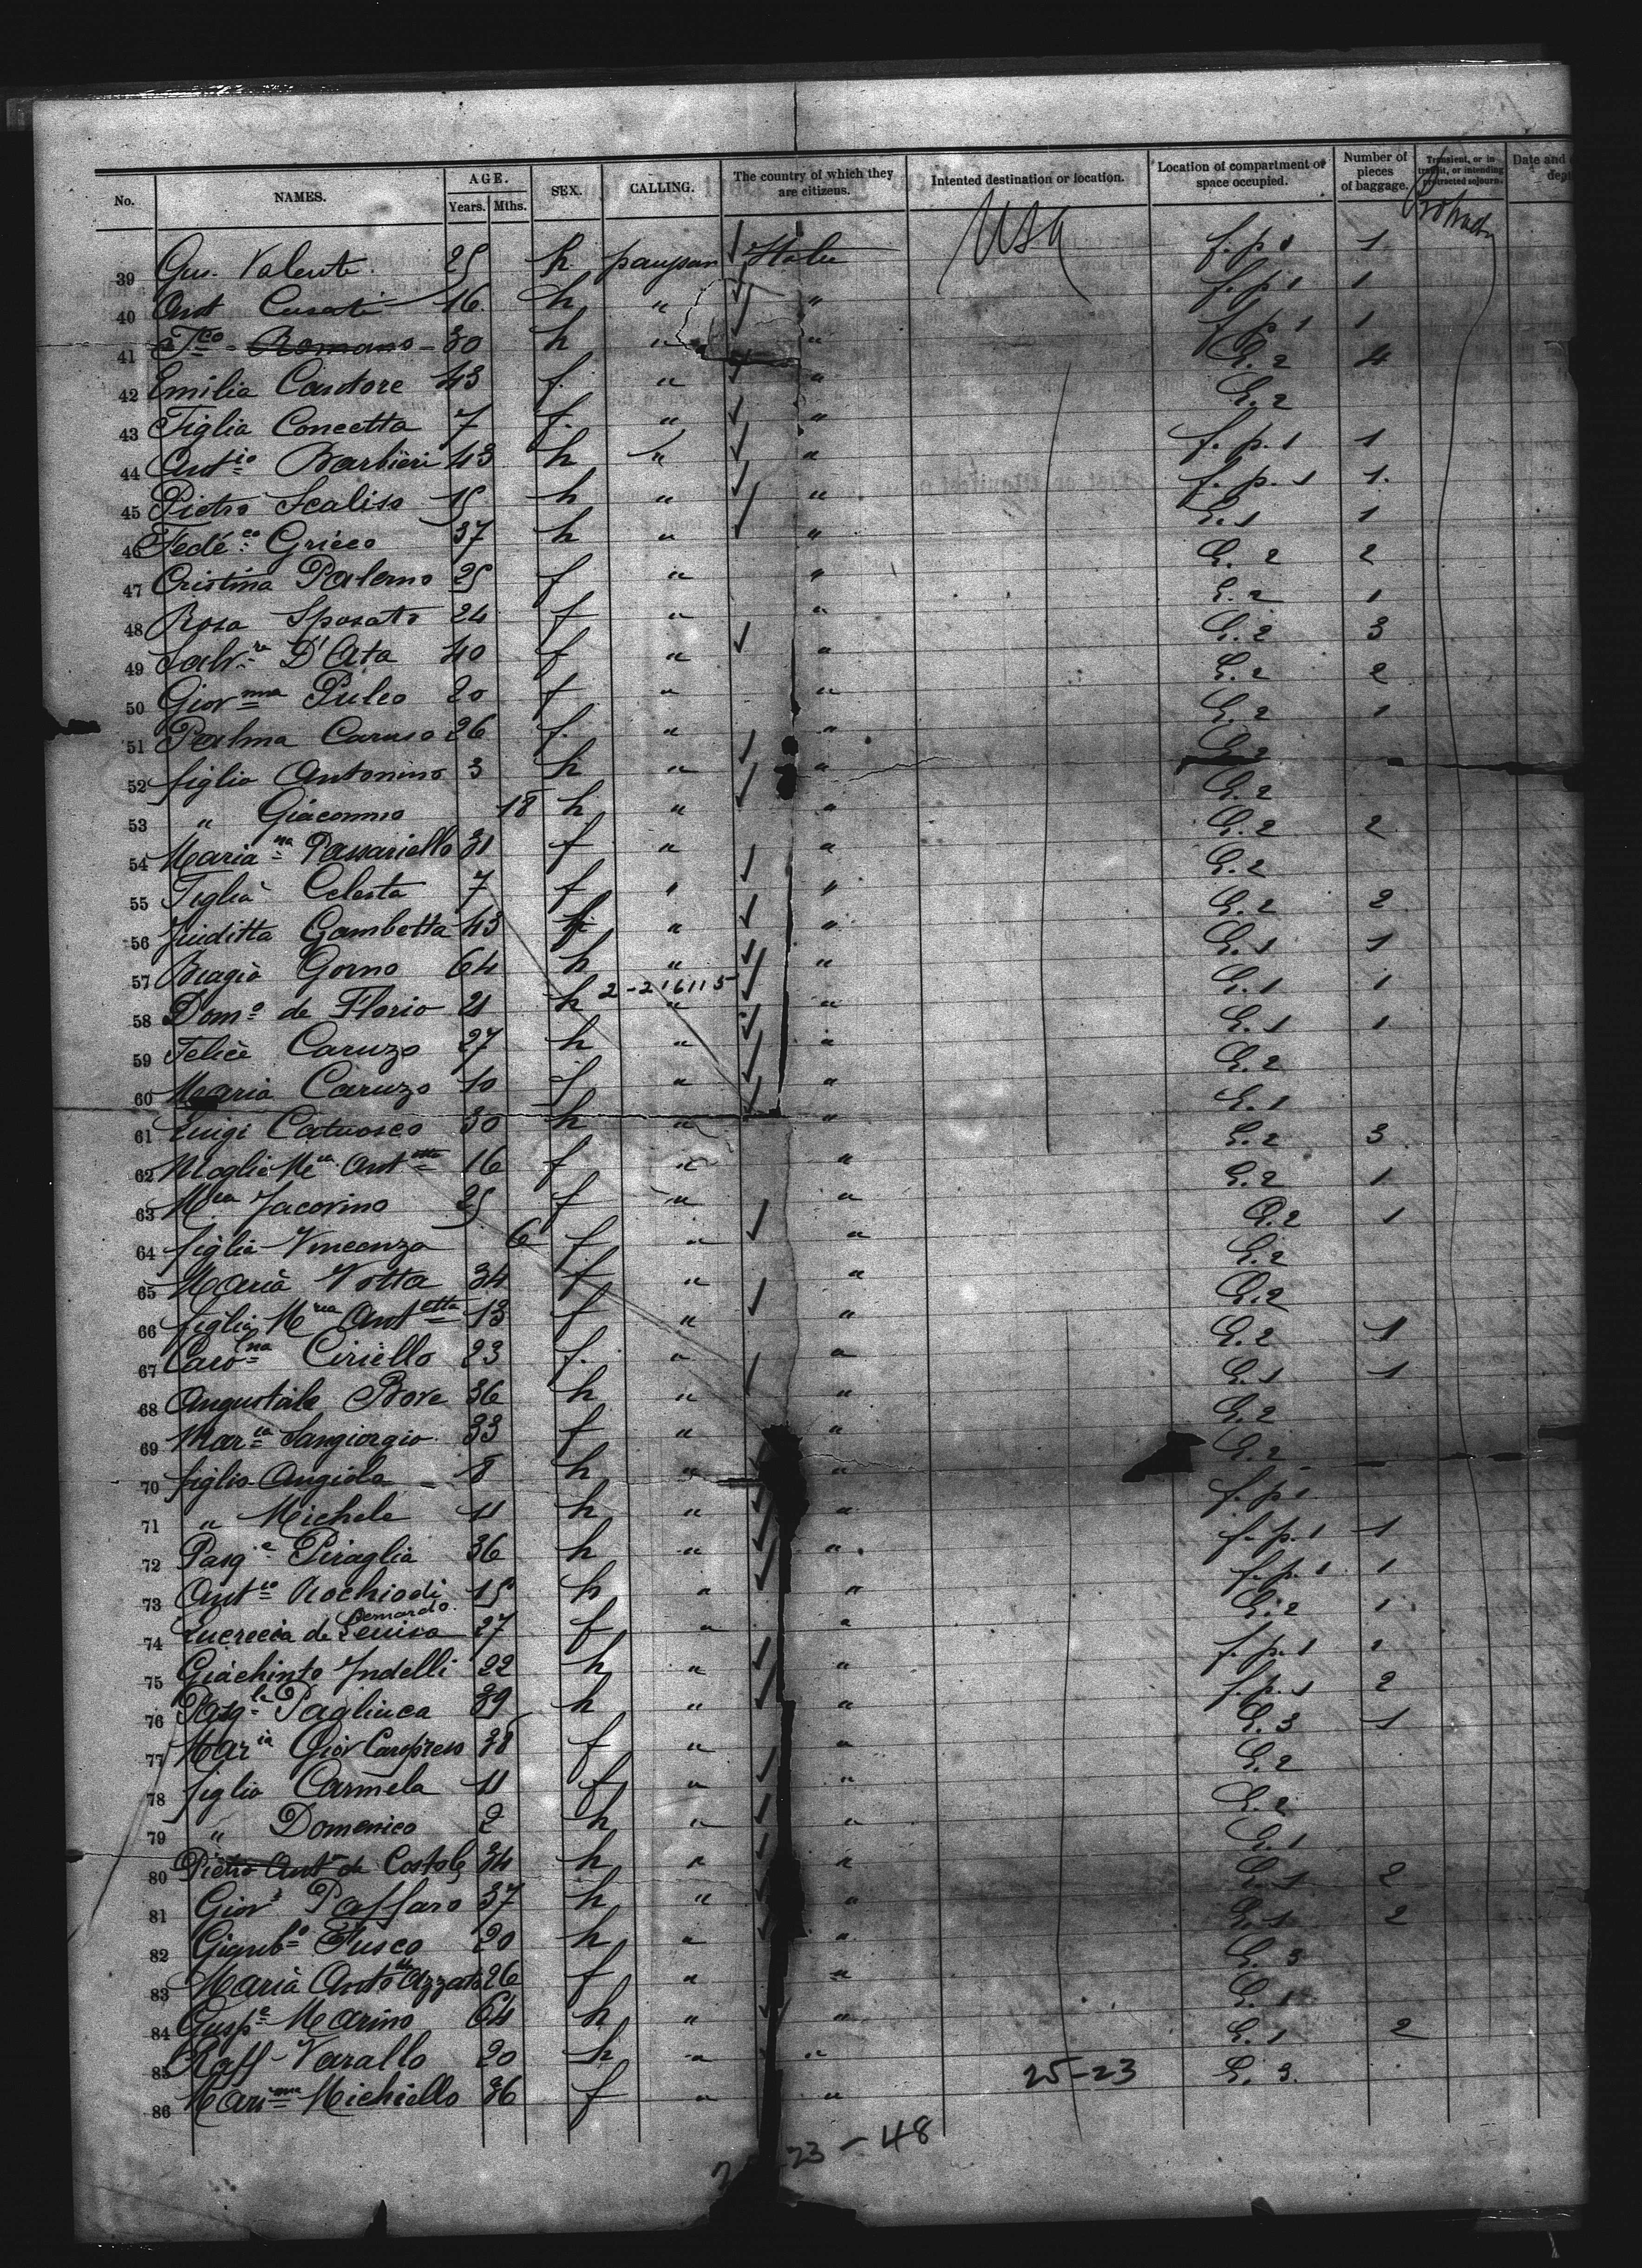 No. NAMES. AGE. Years. Mths. SEX. CALLING. The country of which they are citizens. Intented destination or location. Location of compartment or space occupied. Number of pieces of baggage. Transient, or in transit, or intending protracted sojourn. Date and
USA
39 Gus. Valenti 25 h paysan Italie f. p. 1 1
40 Ant 16 h " " f. p. 1 1
41 Fco Romano 30 h " " f. p. 1 1
42 Emilia Cantore 43 f. " " E. 2 4
43 Figlia Concetta 7 f. " " E. 2
44 Antio Barbieri 43 h " " f. p. 1 1
45 Pietro Scaliso 15 h " " f. p. 1 1.
46 Fedéco Grieco 37 h " " E. 1 1
47 Cristina Palermo 25 f " " E. 2 2
48 Rosa Sposato 24 f " " E. 2 1
49 Salvra D'Ata 40 f " " E. 2 3
50 Giovnna Puleo 20 f " " E. 2 2
51 Palma Caruso 26 f. " " E. 2 1
52 figlio Antonino 3 h " " E. 2
53 " Giacommo 18 h " " E. 2
54 Mariana Passariello 31 f " " E. 2 2
55 Figlia Celesta 7 f " " E. 2
56 Juiditta Gambetta 43 f " " E. 2 2
57 Biagio Gorno 64 h " " E. 1 1
2-216115
58 Domo de Florio 21 h " " E. 1 1
59 Felice Caruzo 27 h " " E. 1 1
60 Maria Caruzo 10 f " " E. 2
61 Luigi Catuosco 30 h " " E. 1
62 Moglie Mia Antetta 16 f " " E. 2 3
63 Mria Jacovino 25 f " " E. 2 1
64 figlia Vincenza 6 f " " E. 2 1
65 Maria Votta 34 f " " E. 2
66 figlia Mria Antetta 13 f " " E. 2
67 Carolna Ciriello 23 f. " " E. 2 1
68 Angustale Bove 36 h " " E. 1 1
69 Maria Sangiorgio 33 f " " E. 2
70 figlio Angiolo 8 h " " E. 2
71 " Michele 11 h " " f. p. 1
72 Pasqe Piraglia 36 h " " f. p. 1 1
73 Antio Rochiodi 15 h " " f. p. 1 1
Bernardo
74 Lucrecia de 27 f " " E. 2 1
75 Giachinto Indelli 22 h " " f. p. 1 1
76 Pasqle Pagliuca 39 h " " f. p. 1 2
77 Maria Giov Campreso 38 f " " E. 3 1
78 figlia Carmela 11 f " " E. 2
79 " Domenico 2 h " " E. 2
80 Pietro Ant de Costole 34 h " " E. 1
81 Giov Paffaro 37 h " " E. 1 2
82 Giambo Fusco 20 h " " E. 1 2
83 Maria Antoia Azzato 26 f " " E. 3
84 Guspe Marino 64 h " " E. 1
85 Raff Varallo 20 h " " E. 1 2
86 Marinna Michiello 36 f " " 25-23 E. 3.
23-48